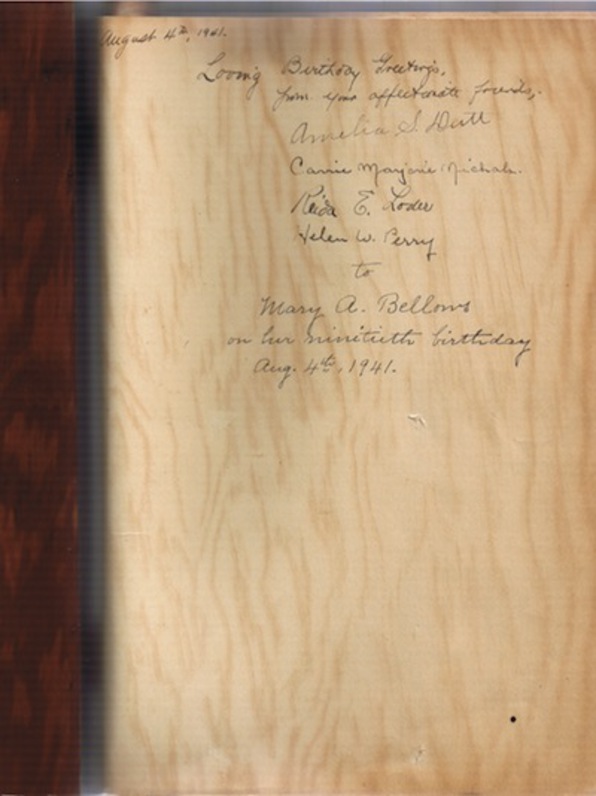 August 4th, 1941.
Loving Birthday Greetings,
from your affectionate friends,
Amelia S.
Carrie Marjorie Nichols.
Reida E. Loder
Helen W. Perry
to
Mary A. Bellows
on her ninetieth birthday
Aug. 4th, 1941.